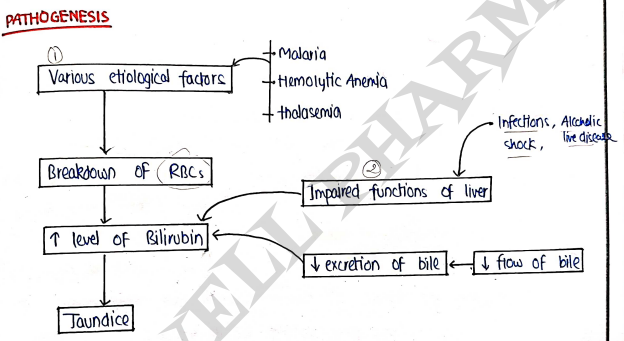 PATHOGENESIS
①
Various etiological factors
Malaria
Hemolytic Anemia
thalasemia
Infections, Alcoholic
shock, live disease
Breakdown of RBCs
②
Impaired functions of liver
↑ level of Bilirubin
↓ excretion of bile
↓ flow of bile
Jaundice
WELL PHARM